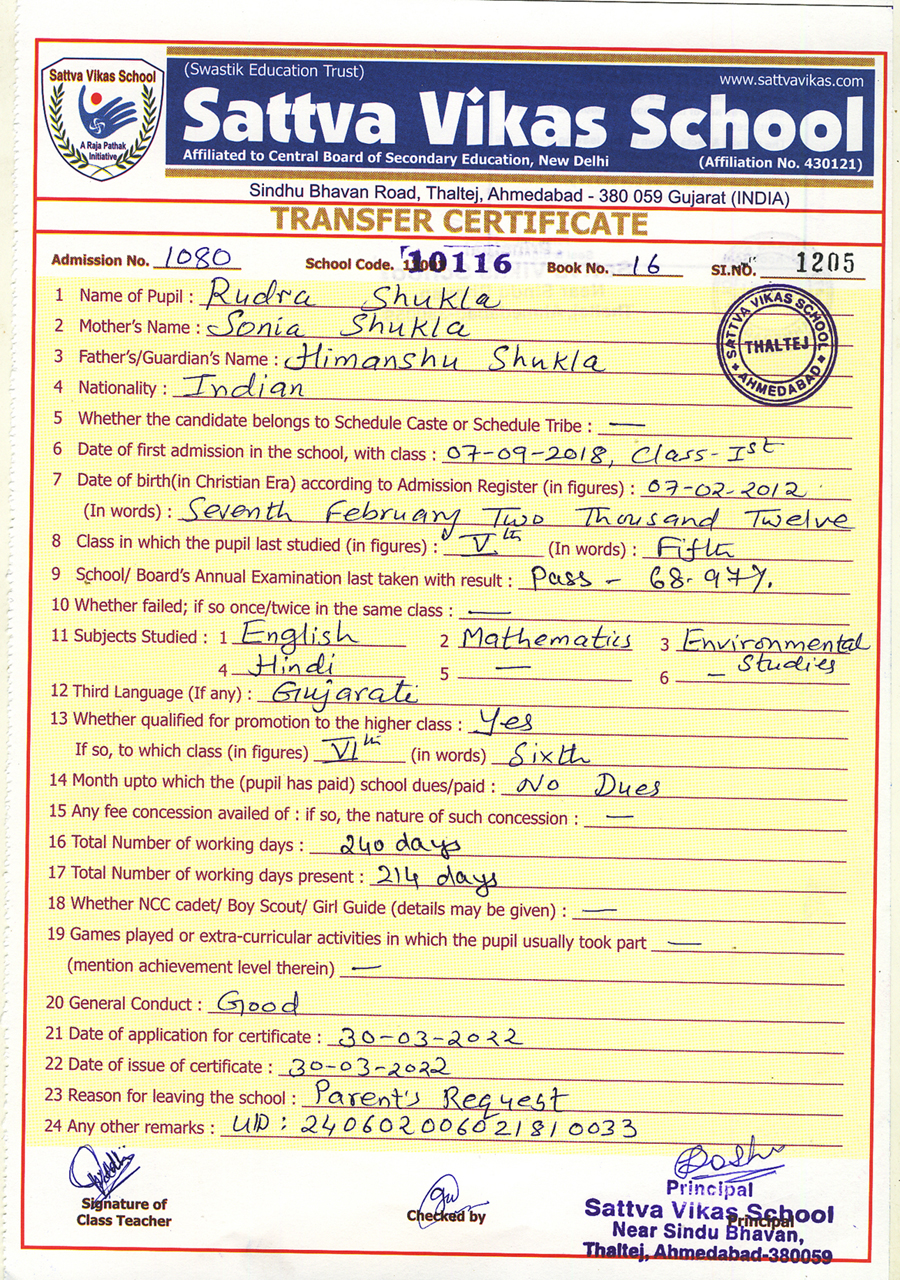 Sattva Vikas School
A Raja Pathak
Initiative
(Swastik Education Trust)
www.sattvavikas.com
Sattva Vikas School
Affiliated to Central Board of Secondary Education, New Delhi (Affiliation No. 430121)
Sindhu Bhavan Road, Thaltej, Ahmedabad - 380 059 Gujarat (INDIA)
TRANSFER CERTIFICATE
Admission No. 1080 School Code. 10116 Book No. 16 SI.NO. 1205
SATTVA VIKAS SCHOOL
THALTEJ
AHMEDABAD
1 Name of Pupil : Rudra Shukla
2 Mother's Name : Sonia Shukla
3 Father's/Guardian's Name : Himanshu Shukla
4 Nationality : Indian
5 Whether the candidate belongs to Schedule Caste or Schedule Tribe : —
6 Date of first admission in the school, with class : 07-09-2018, Class-Ist
7 Date of birth(in Christian Era) according to Admission Register (in figures) : 07-02-2012
(In words) : Seventh February Two Thousand Twelve
8 Class in which the pupil last studied (in figures) : Vth (In words) : Fifth
9 School/ Board's Annual Examination last taken with result : Pass - 68.97%.
10 Whether failed; if so once/twice in the same class : —
11 Subjects Studied : 1 English 2 Mathematics 3 Environmental
4 Hindi 5 — 6 – Studies
12 Third Language (If any) : Gujarati
13 Whether qualified for promotion to the higher class : Yes
If so, to which class (in figures) VIth (in words) Sixth
14 Month upto which the (pupil has paid) school dues/paid : No Dues
15 Any fee concession availed of : if so, the nature of such concession : —
16 Total Number of working days : 240 days
17 Total Number of working days present : 214 days
18 Whether NCC cadet/ Boy Scout/ Girl Guide (details may be given) : —
19 Games played or extra-curricular activities in which the pupil usually took part —
(mention achievement level therein) —
20 General Conduct : Good
21 Date of application for certificate : 30-03-2022
22 Date of issue of certificate : 30-03-2022
23 Reason for leaving the school : Parent's Request
24 Any other remarks : UID : 240602006021810033
Signature of
Class Teacher
Checked by
Principal
Principal
Sattva Vikas School
Near Sindu Bhavan,
Thaltej, Ahmedabad-380059